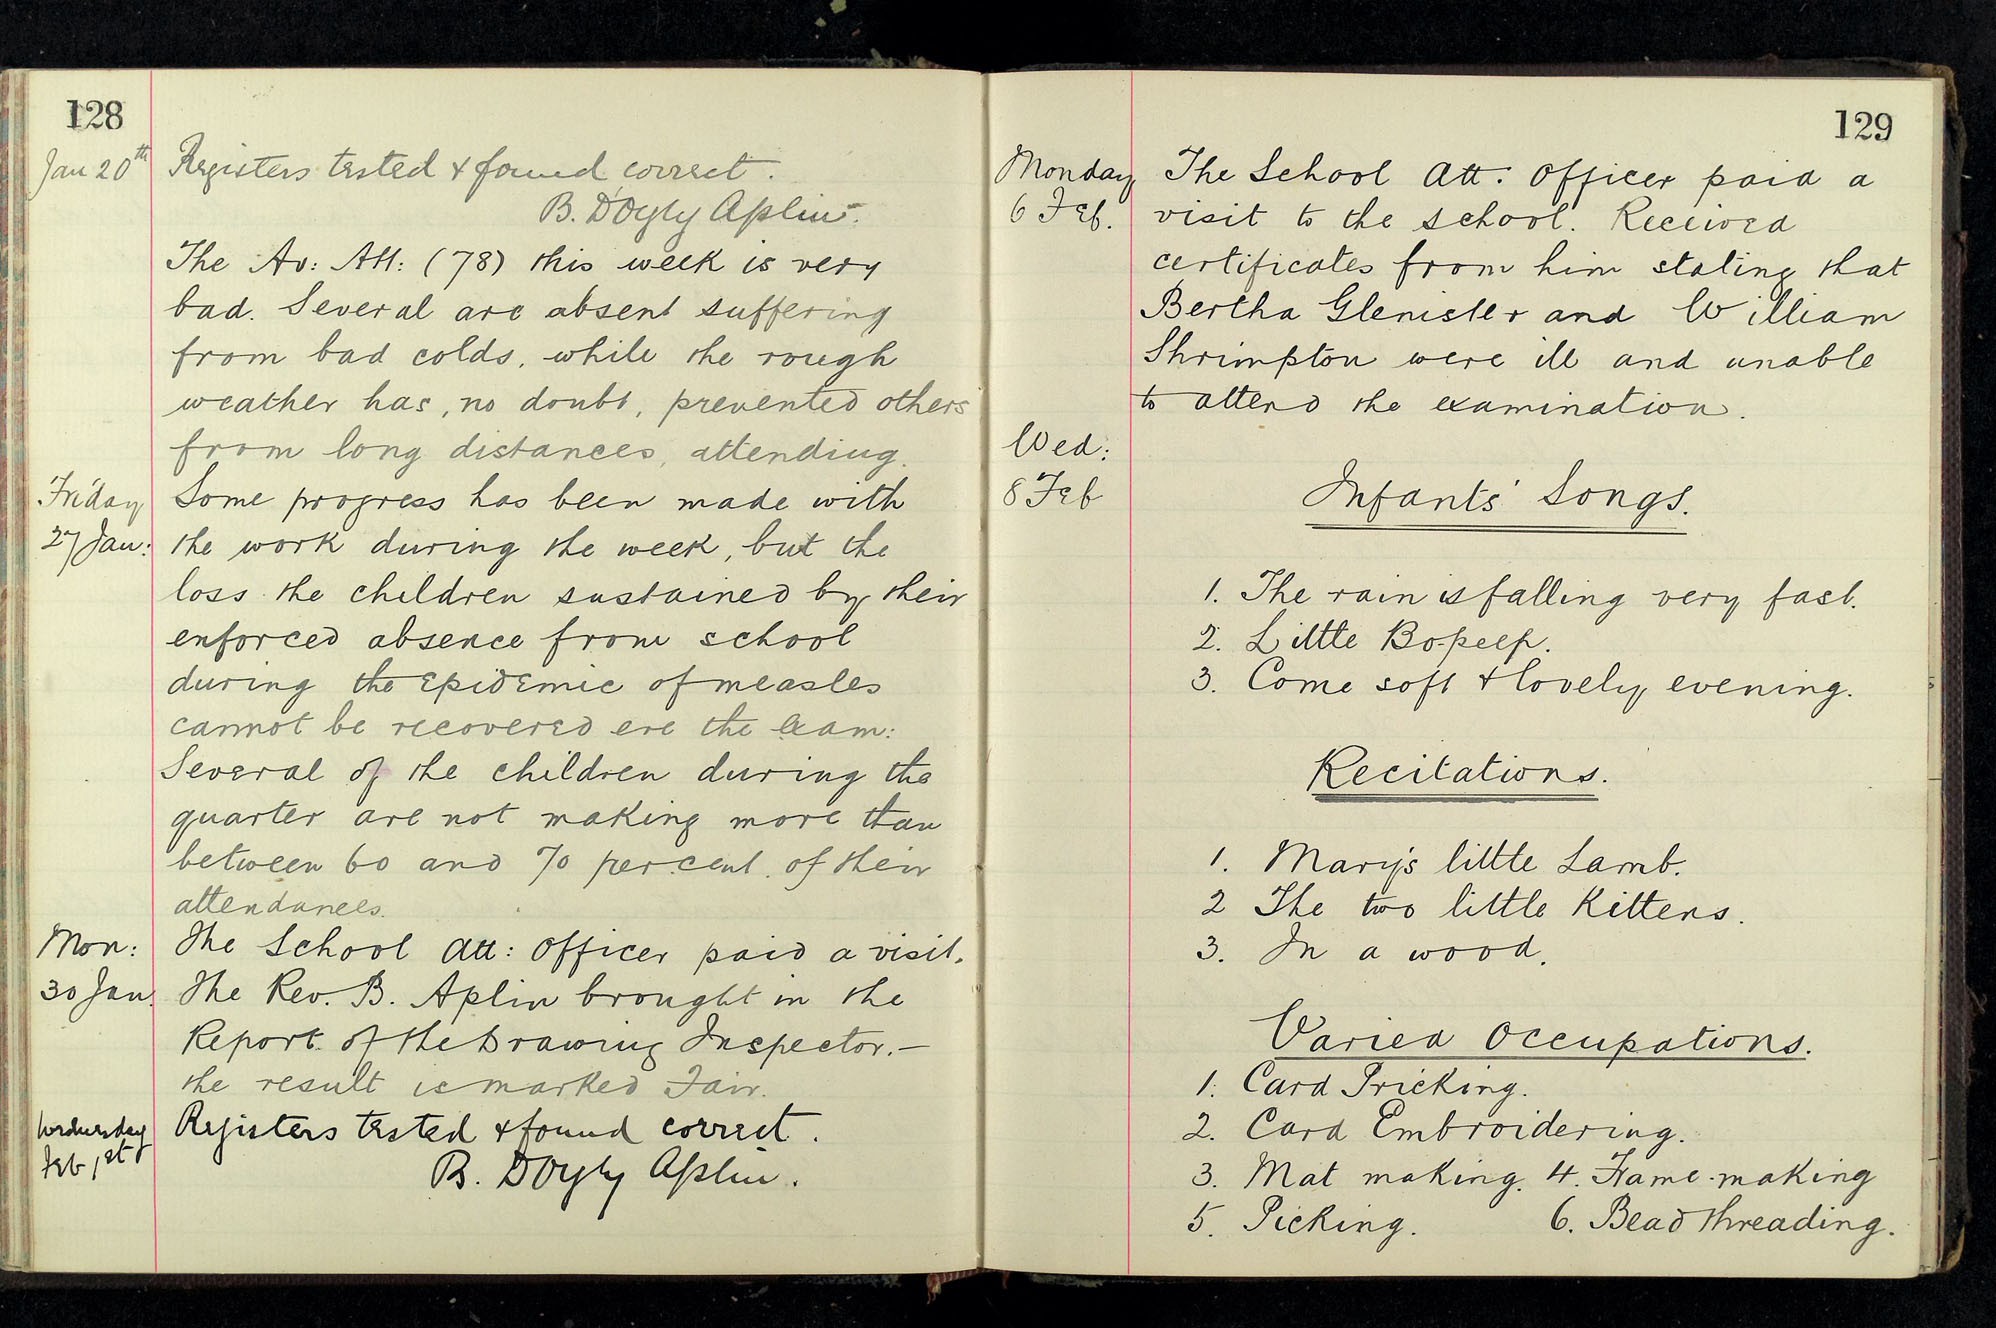 128
Jan 20th Registers tested & found correct.
B. D'Oyly Aplin.
The Av: Att: (78) this week is very
bad. Several are absent suffering
from bad colds, while the rough
weather has, no doubt, prevented others
from long distances, attending.
Friday Some progress has been made with
27 Jan: the work during the week, but the
loss the children sustained by their
enforced absence from school
during the epidemic of measles
cannot be recovered ere the Exam:
Several of the children during the
quarter are not making more than
between 60 and 70 per.cent. of their
attendances.
Mon: The School Att: Officer paid a visit.
30 Jan. The Rev. B. Aplin brought in the
Report of the Drawing Inspector.—
the result is marked Fair.
Wednesday Registers tested & found correct.
Feb 1st B. D'Oyly Aplin.
129
Monday The School Att: Officer paid a
6 Feb. visit to the school. Received
certificates from him stating that
Bertha Glenister and William
Shrimpton were ill and unable
to attend the examination.
Wed:
8 Feb Infants' Songs.
1. The rain is falling very fast.
2. Little Bo-peep.
3. Come soft & lovely evening.
Recitations.
1. Mary's little Lamb.
2 The two little Kittens.
3. In a wood.
Varied Occupations.
1. Card Pricking.
2. Card Embroidering.
3. Mat making. 4. Frame-making
5. Picking. 6. Bead threading.